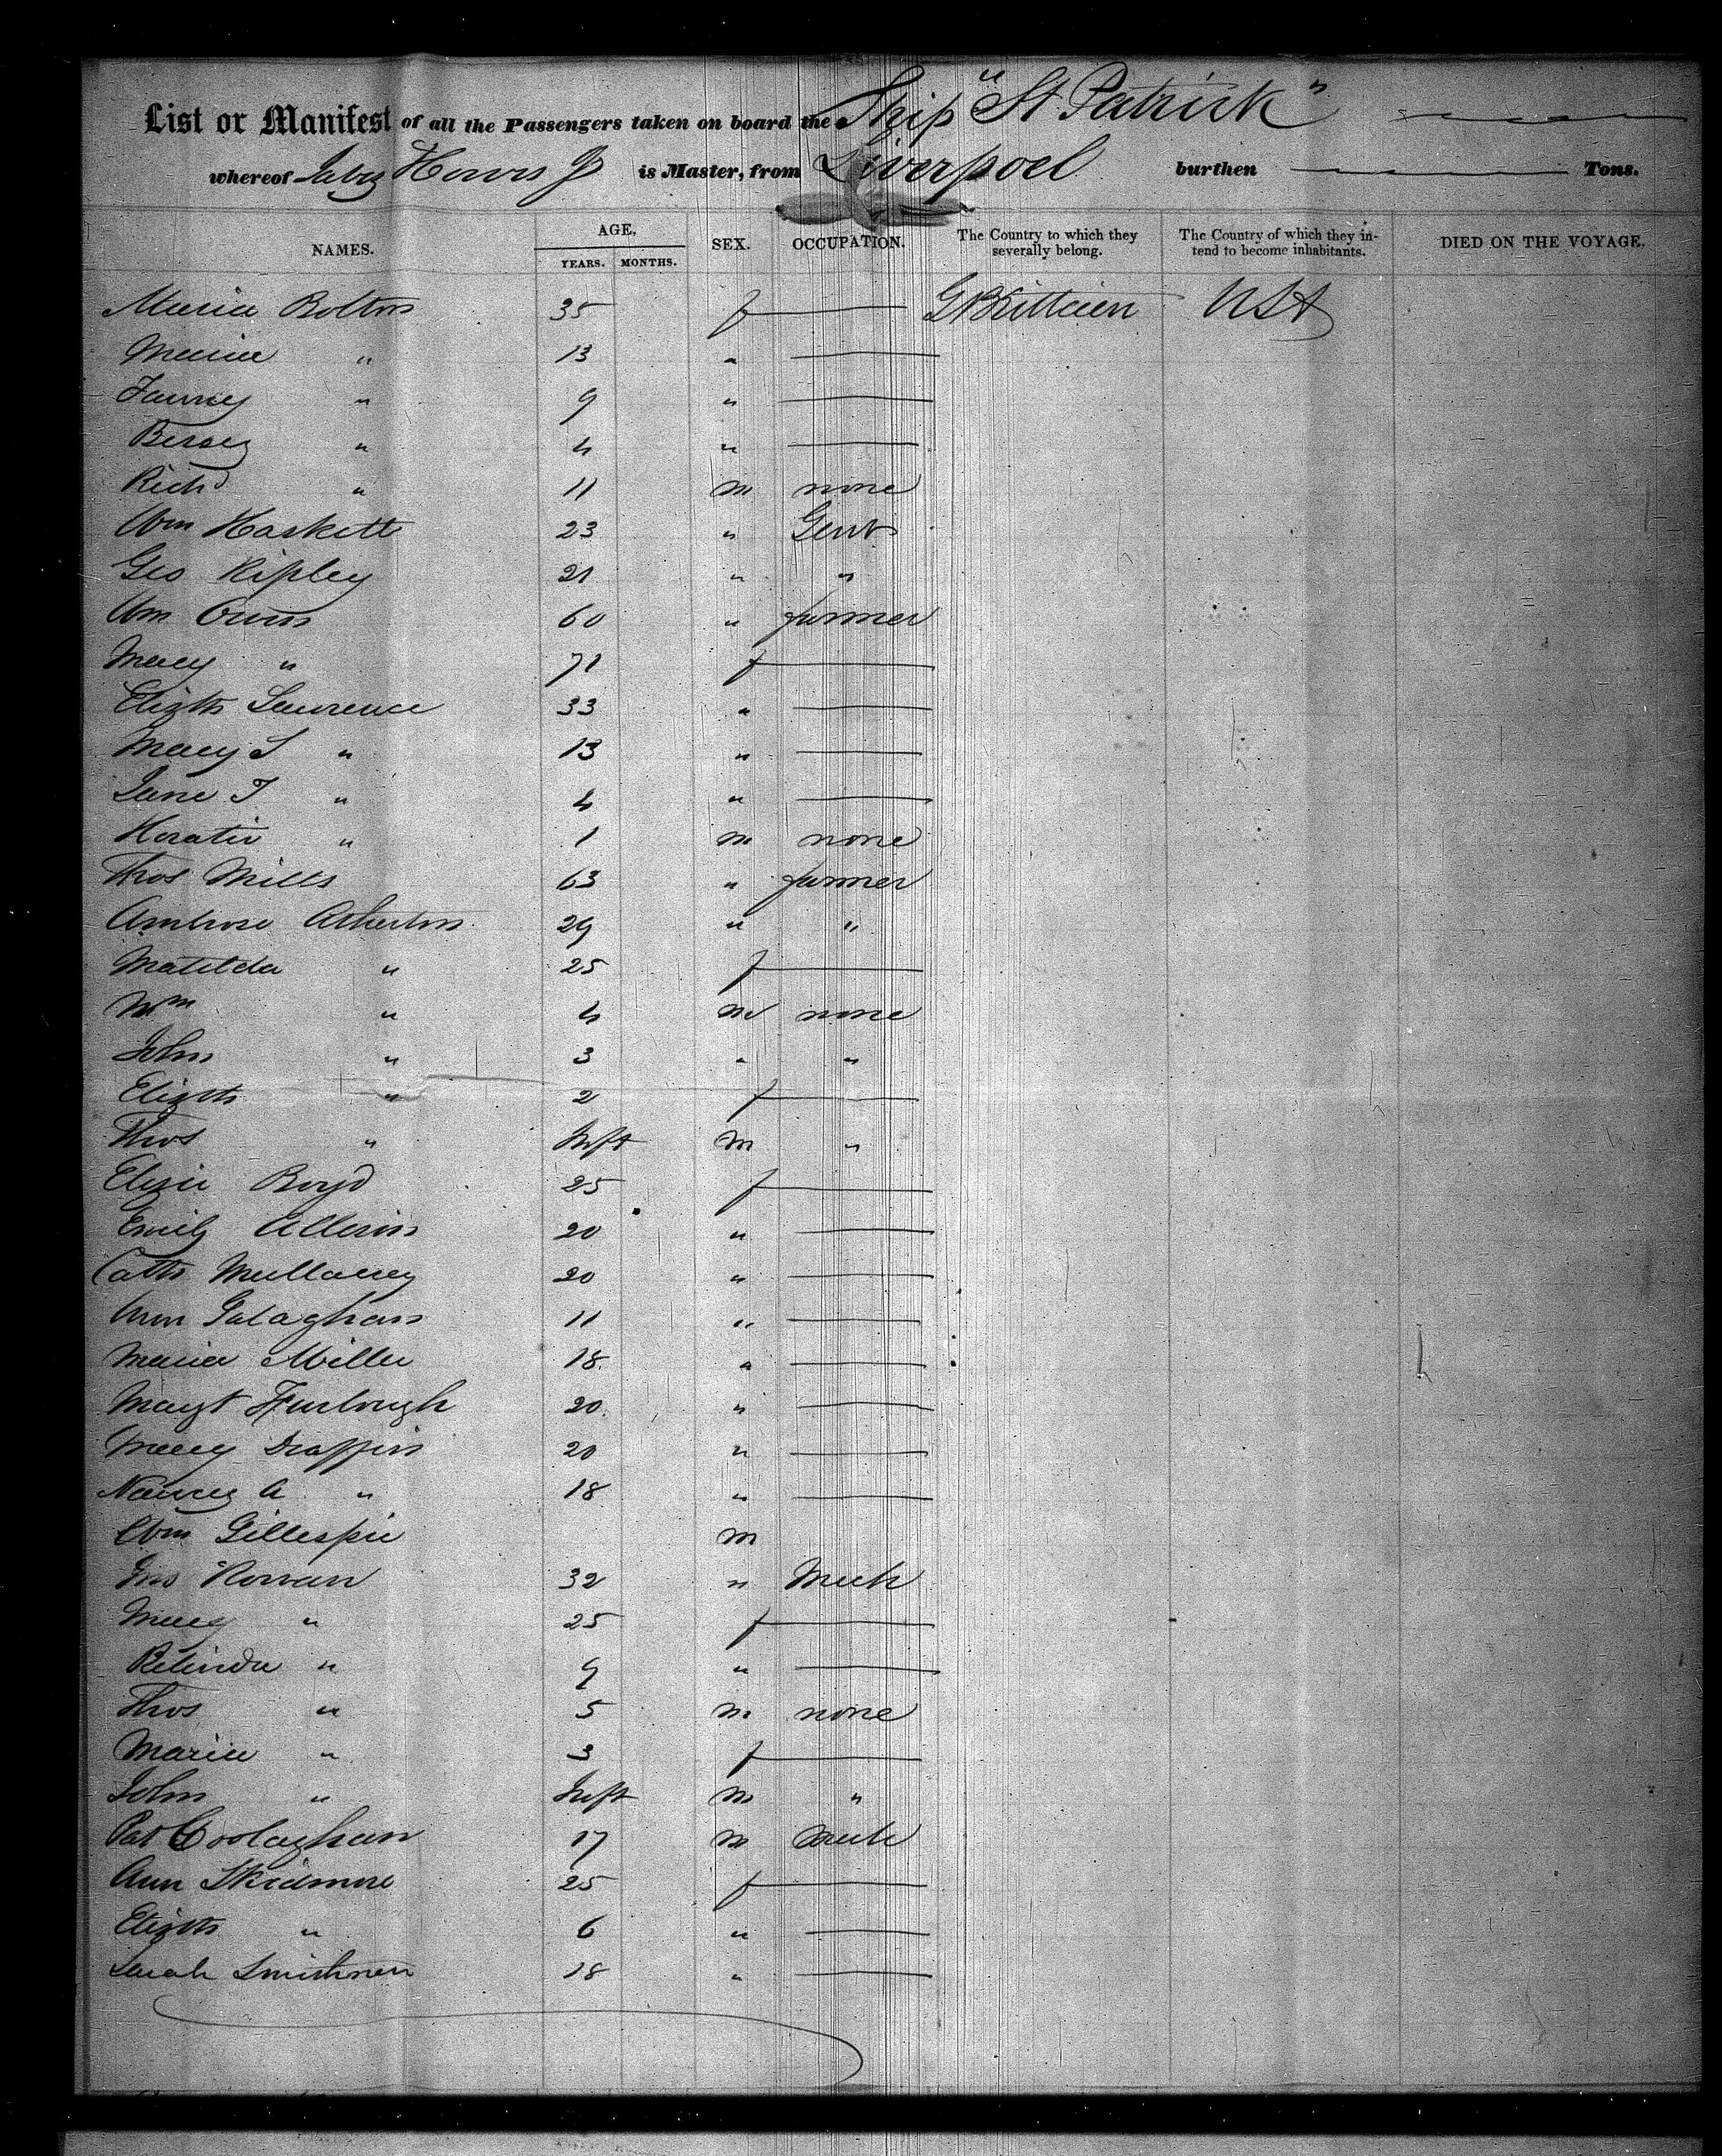 List or Manifest of all the Passengers taken on board the Ship "St Patrick"
whereof Jabez Howes Jr is Master, from Liverpool burthen Tons.
NAMES. AGE. SEX. OCCUPATION. The Country to which they severally belong. The Country of which they intend to become inhabitants. DIED ON THE VOYAGE.
YEARS. MONTHS.
Maria Bolton 35 f G Brittain USA
Maria " 13 "
Fanny " 9 "
Betsey " 4 "
Richd " 11 m none
Wm Haskett 23 " Gent
Geo Ripley 21 " "
Wm Owens 60 " farmer
Mary " 71 f
Elizth Lawrence 33 "
Mary S " 13 "
Jane T " 4 "
Horatio " 1 m none
Thos Mills 63 " farmer
Ambrose Atherton 29 " "
Matilda " 25 f
Wm " 4 m none
John " 3 " "
Elizth " 2 f
Thos " Inft m "
Eliza Boyd 25 f
Emily 20 "
Cath Mullaney 20 "
Ann Galaghan 11 "
Maria Miller 18 "
Margt Furlough 20 "
Mary Draffin 20 "
Nancy A " 18 "
Wm Gillespie m
Jno Rowan 32 " Mech
Mary " 25 f
Belinda " 9 "
Thos " 5 m none
Maria " 3 f
John " Inft m "
Pat Goolaghan 17 m mech
Ann Skidmore 25 f
Elizth " 6 "
Sarah 18 "